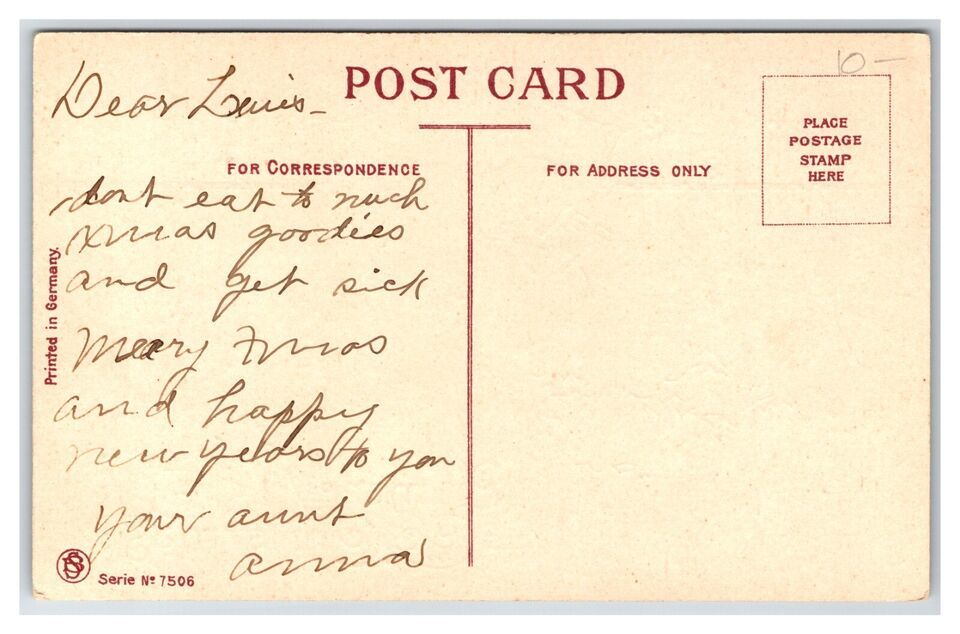 10 —
Dear Louis —
POST CARD
PLACE
POSTAGE
STAMP
HERE
FOR CORRESPONDENCE
FOR ADDRESS ONLY
dont eat to much
xmas goodies
and get sick
Merry Xmas
and happy
new years to you
your aunt
anna
Printed in Germany.
Serie Nº 7506